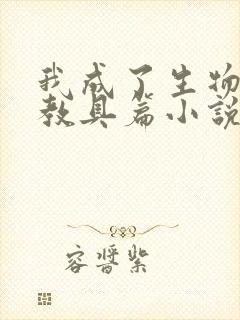 我成了生物
教具篇小說
容晉紫